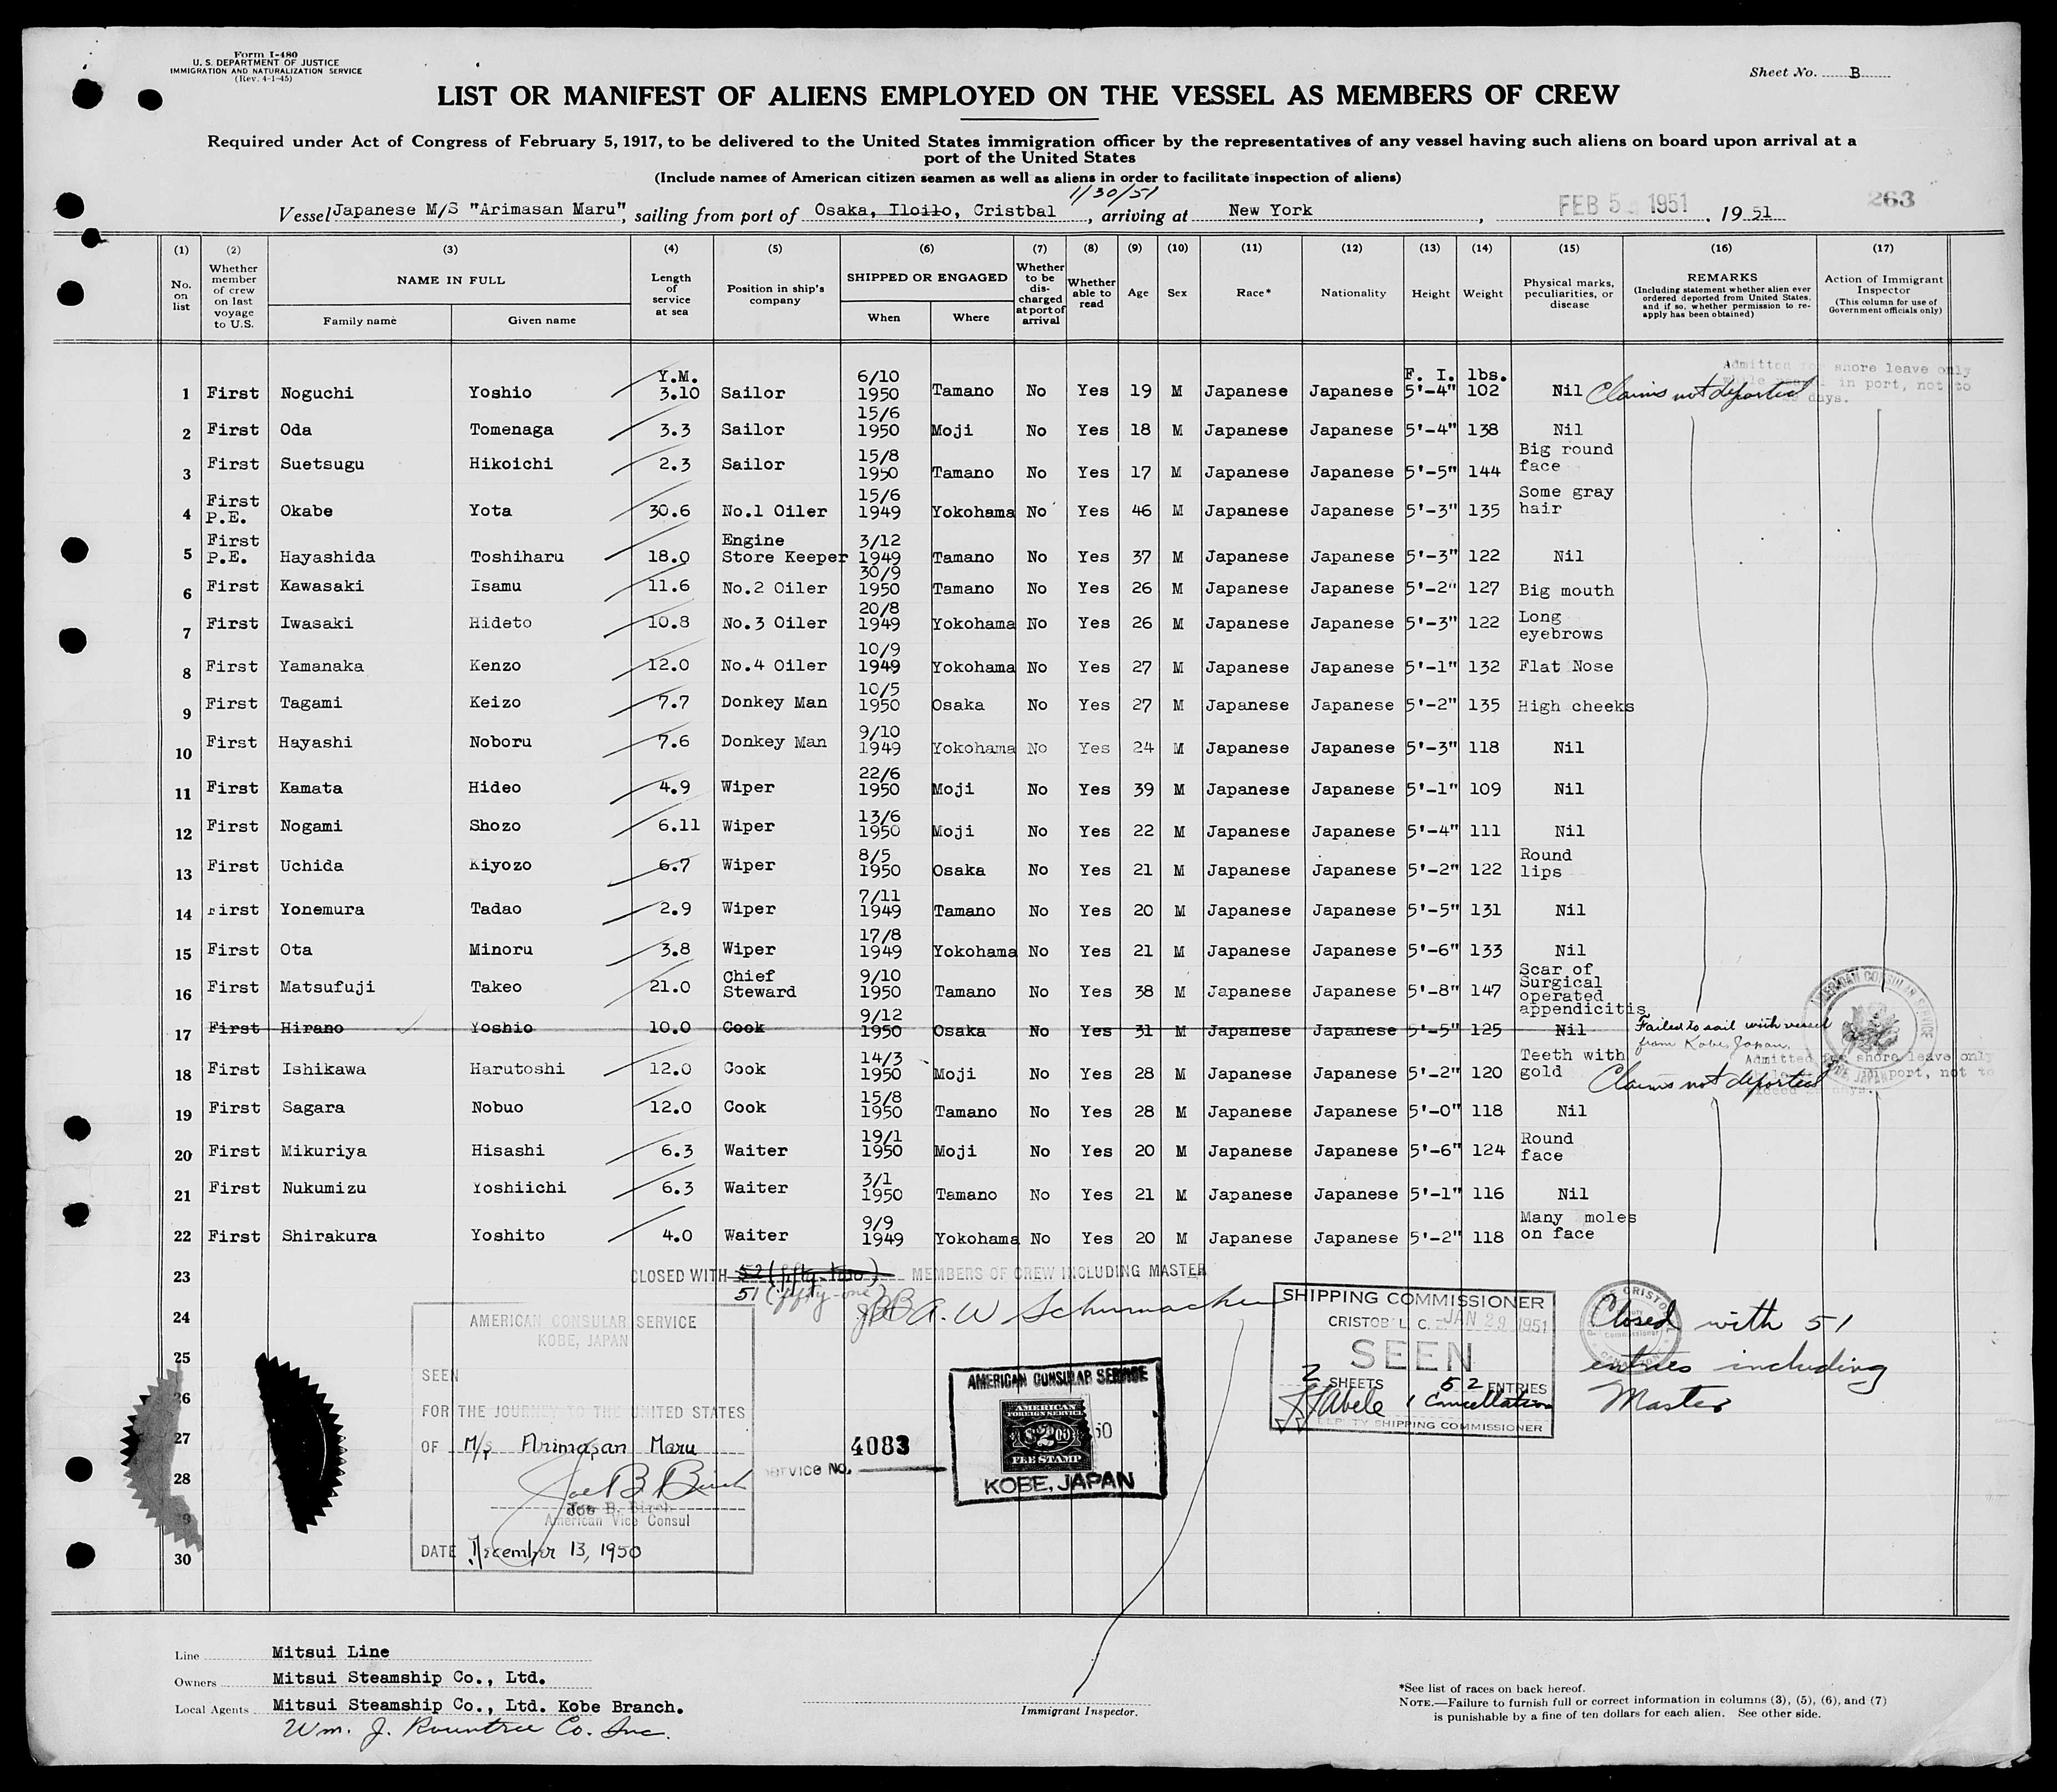 Form I-480
U. S. DEPARTMENT OF JUSTICE
IMMIGRATION AND NATURALIZATION SERVICE
(Rev. 4-1-45)
Sheet No. B
LIST OR MANIFEST OF ALIENS EMPLOYED ON THE VESSEL AS MEMBERS OF CREW
Required under Act of Congress of February 5, 1917, to be delivered to the United States immigration officer by the representatives of any vessel having such aliens on board upon arrival at a
port of the United States
(Include names of American citizen seamen as well as aliens in order to facilitate inspection of aliens)
1/30/51
Vessel Japanese M/S "Arimasan Maru", sailing from port of Osaka, Iloilo, Cristbal, arriving at New York, FEB 5 1951, 19 51
263
(1) (2) (3) (4) (5) (6) (7) (8) (9) (10) (11) (12) (13) (14) (15) (16) (17)
No. on list
Whether member of crew on last voyage to U.S.
NAME IN FULL
Family name
Given name
Length of service at sea
Position in ship's company
SHIPPED OR ENGAGED
When
Where
Whether to be discharged at port of arrival
Whether able to read
Age
Sex
Race*
Nationality
Height
Weight
Physical marks, peculiarities, or disease
REMARKS
(Including statement whether alien ever ordered deported from United States, and if so, whether permission to reapply has been obtained)
Action of Immigrant Inspector
(This column for use of Government officials only)
Y.M. F. I. lbs.
1 First Noguchi Yoshio 3.10 Sailor 6/10 1950 Tamano No Yes 19 M Japanese Japanese 5'-4" 102 Nil Claims not deported
Admitted for shore leave only
while in port, not to
days.
2 First Oda Tomenaga 3.3 Sailor 15/6 1950 Moji No Yes 18 M Japanese Japanese 5'-4" 138 Nil
3 First Suetsugu Hikoichi 2.3 Sailor 15/8 1950 Tamano No Yes 17 M Japanese Japanese 5'-5" 144 Big round face
4 First P.E. Okabe Yota 30.6 No.1 Oiler 15/6 1949 Yokohama No Yes 46 M Japanese Japanese 5'-3" 135 Some gray hair
5 First P.E. Hayashida Toshiharu 18.0 Engine Store Keeper 3/12 1949 Tamano No Yes 37 M Japanese Japanese 5'-3" 122 Nil
6 First Kawasaki Isamu 11.6 No.2 Oiler 30/9 1950 Tamano No Yes 26 M Japanese Japanese 5'-2" 127 Big mouth
7 First Iwasaki Hideto 10.8 No.3 Oiler 20/8 1949 Yokohama No Yes 26 M Japanese Japanese 5'-3" 122 Long eyebrows
8 First Yamanaka Kenzo 12.0 No.4 Oiler 10/9 1949 Yokohama No Yes 27 M Japanese Japanese 5'-1" 132 Flat Nose
9 First Tagami Keizo 7.7 Donkey Man 10/5 1950 Osaka No Yes 27 M Japanese Japanese 5'-2" 135 High cheeks
10 First Hayashi Noboru 7.6 Donkey Man 9/10 1949 Yokohama No Yes 24 M Japanese Japanese 5'-3" 118 Nil
11 First Kamata Hideo 4.9 Wiper 22/6 1950 Moji No Yes 39 M Japanese Japanese 5'-1" 109 Nil
12 First Nogami Shozo 6.11 Wiper 13/6 1950 Moji No Yes 22 M Japanese Japanese 5'-4" 111 Nil
13 First Uchida Kiyozo 6.7 Wiper 8/5 1950 Osaka No Yes 21 M Japanese Japanese 5'-2" 122 Round lips
14 First Yonemura Tadao 2.9 Wiper 7/11 1949 Tamano No Yes 20 M Japanese Japanese 5'-5" 131 Nil
15 First Ota Minoru 3.8 Wiper 17/8 1949 Yokohama No Yes 21 M Japanese Japanese 5'-6" 133 Nil
16 First Matsufuji Takeo 21.0 Chief Steward 9/10 1950 Tamano No Yes 38 M Japanese Japanese 5'-8" 147 Scar of Surgical operated appendicitis
17 First Hirano Yoshio 10.0 Cook 9/12 1950 Osaka No Yes 31 M Japanese Japanese 5'-5" 125 Nil Failed to sail with vessel from Kobe, Japan.
AMERICAN CONSULAR SERVICE KOBE JAPAN
18 First Ishikawa Harutoshi 12.0 Cook 14/3 1950 Moji No Yes 28 M Japanese Japanese 5'-2" 120 Teeth with gold Claims not deported
Admitted for shore leave only
port, not to
exceed days.
19 First Sagara Nobuo 12.0 Cook 15/8 1950 Tamano No Yes 28 M Japanese Japanese 5'-0" 118 Nil
20 First Mikuriya Hisashi 6.3 Waiter 19/1 1950 Moji No Yes 20 M Japanese Japanese 5'-6" 124 Round face
21 First Nukumizu Yoshiichi 6.3 Waiter 3/1 1950 Tamano No Yes 21 M Japanese Japanese 5'-1" 116 Nil
22 First Shirakura Yoshito 4.0 Waiter 9/9 1949 Yokohama No Yes 20 M Japanese Japanese 5'-2" 118 Many moles on face
23
CLOSED WITH 52 (fifty-two) MEMBERS OF CREW INCLUDING MASTER
51 (fifty-one)
JBB A. W Schumacher
24
25
26
27
28
9
30
AMERICAN CONSULAR SERVICE
KOBE, JAPAN
SEEN
FOR THE JOURNEY TO THE UNITED STATES
OF M/S Arimasan Maru
Joe B Birch
Joe B. Birch
American Vice Consul
DATE December 13, 1950
4083
SERVICE NO.
AMERICAN CONSULAR SERVICE
AMERICAN
FOREIGN SERVICE
$2.00
FEE STAMP
50
KOBE, JAPAN
SHIPPING COMMISSIONER
CRISTOBAL C. Z. JAN 29 1951
SEEN
2 SHEETS 52 ENTRIES
Abele 1 Cancellation
DEPUTY SHIPPING COMMISSIONER
Closed with 51
entries including
Master
Line Mitsui Line
Owners Mitsui Steamship Co., Ltd.
Local Agents Mitsui Steamship Co., Ltd. Kobe Branch.
Wm. J. Rountree Co. Inc.
Immigrant Inspector.
*See list of races on back hereof.
NOTE.—Failure to furnish full or correct information in columns (3), (5), (6), and (7)
is punishable by a fine of ten dollars for each alien. See other side.